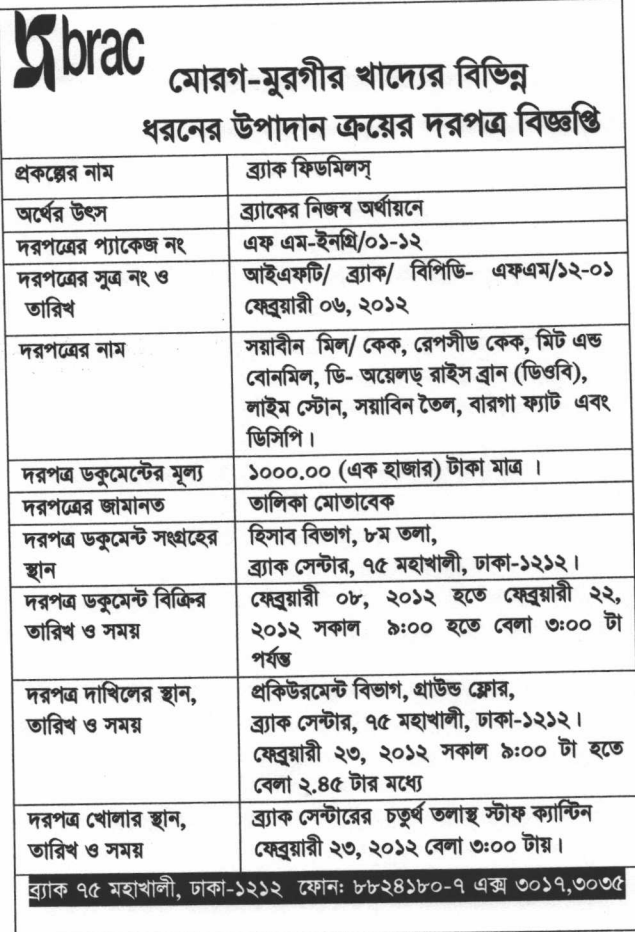 brac
মোরগ-মুরগীর খাদ্যের বিভিন্ন
ধরনের উপাদান ক্রয়ের দরপত্র বিজ্ঞপ্তি
প্রকল্পের নাম ব্র্যাক ফিডমিলস্
অর্থের উৎস ব্র্যাকের নিজস্ব অর্থায়নে
দরপত্রের প্যাকেজ নং এফ এম-ইনগ্রি/০১-১২
দরপত্রের সুত্র নং ও আইএফটি/ ব্র্যাক/ বিপিডি- এফএম/১২-০১
তারিখ ফেব্রুয়ারী ০৬, ২০১২
দরপত্রের নাম সয়াবীন মিল/ কেক, রেপসীড কেক, মিট এন্ড
বোনমিল, ডি- অয়েলড্ রাইস ব্রান (ডিওবি),
লাইম স্টোন, সয়াবিন তৈল, বারগা ফ্যাট এবং
ডিসিপি।
দরপত্র ডকুমেন্টের মূল্য ১০০০.০০ (এক হাজার) টাকা মাত্র ।
দরপত্রের জামানত তালিকা মোতাবেক
দরপত্র ডকুমেন্ট সংগ্রহের হিসাব বিভাগ, ৮ম তলা,
স্থান ব্র্যাক সেন্টার, ৭৫ মহাখালী, ঢাকা-১২১২।
দরপত্র ডকুমেন্ট বিক্রির ফেব্রুয়ারী ০৮, ২০১২ হতে ফেব্রুয়ারী ২২,
তারিখ ও সময় ২০১২ সকাল ৯:০০ হতে বেলা ৩:০০ টা
পর্যন্ত
দরপত্র দাখিলের স্থান, প্রকিউরমেন্ট বিভাগ, গ্রাউন্ড ফ্লোর,
তারিখ ও সময় ব্র্যাক সেন্টার, ৭৫ মহাখালী, ঢাকা-১২১২।
ফেব্রুয়ারী ২৩, ২০১২ সকাল ৯:০০ টা হতে
বেলা ২.৪৫ টার মধ্যে
দরপত্র খোলার স্থান, ব্র্যাক সেন্টারের চতুর্থ তলাস্থ স্টাফ ক্যান্টিন
তারিখ ও সময় ফেব্রুয়ারী ২৩, ২০১২ বেলা ৩:০০ টায়।
ব্র্যাক ৭৫ মহাখালী, ঢাকা-১২১২ ফোনঃ ৮৮২৪১৮০-৭ এক্স ৩০১৭,৩০৩৫